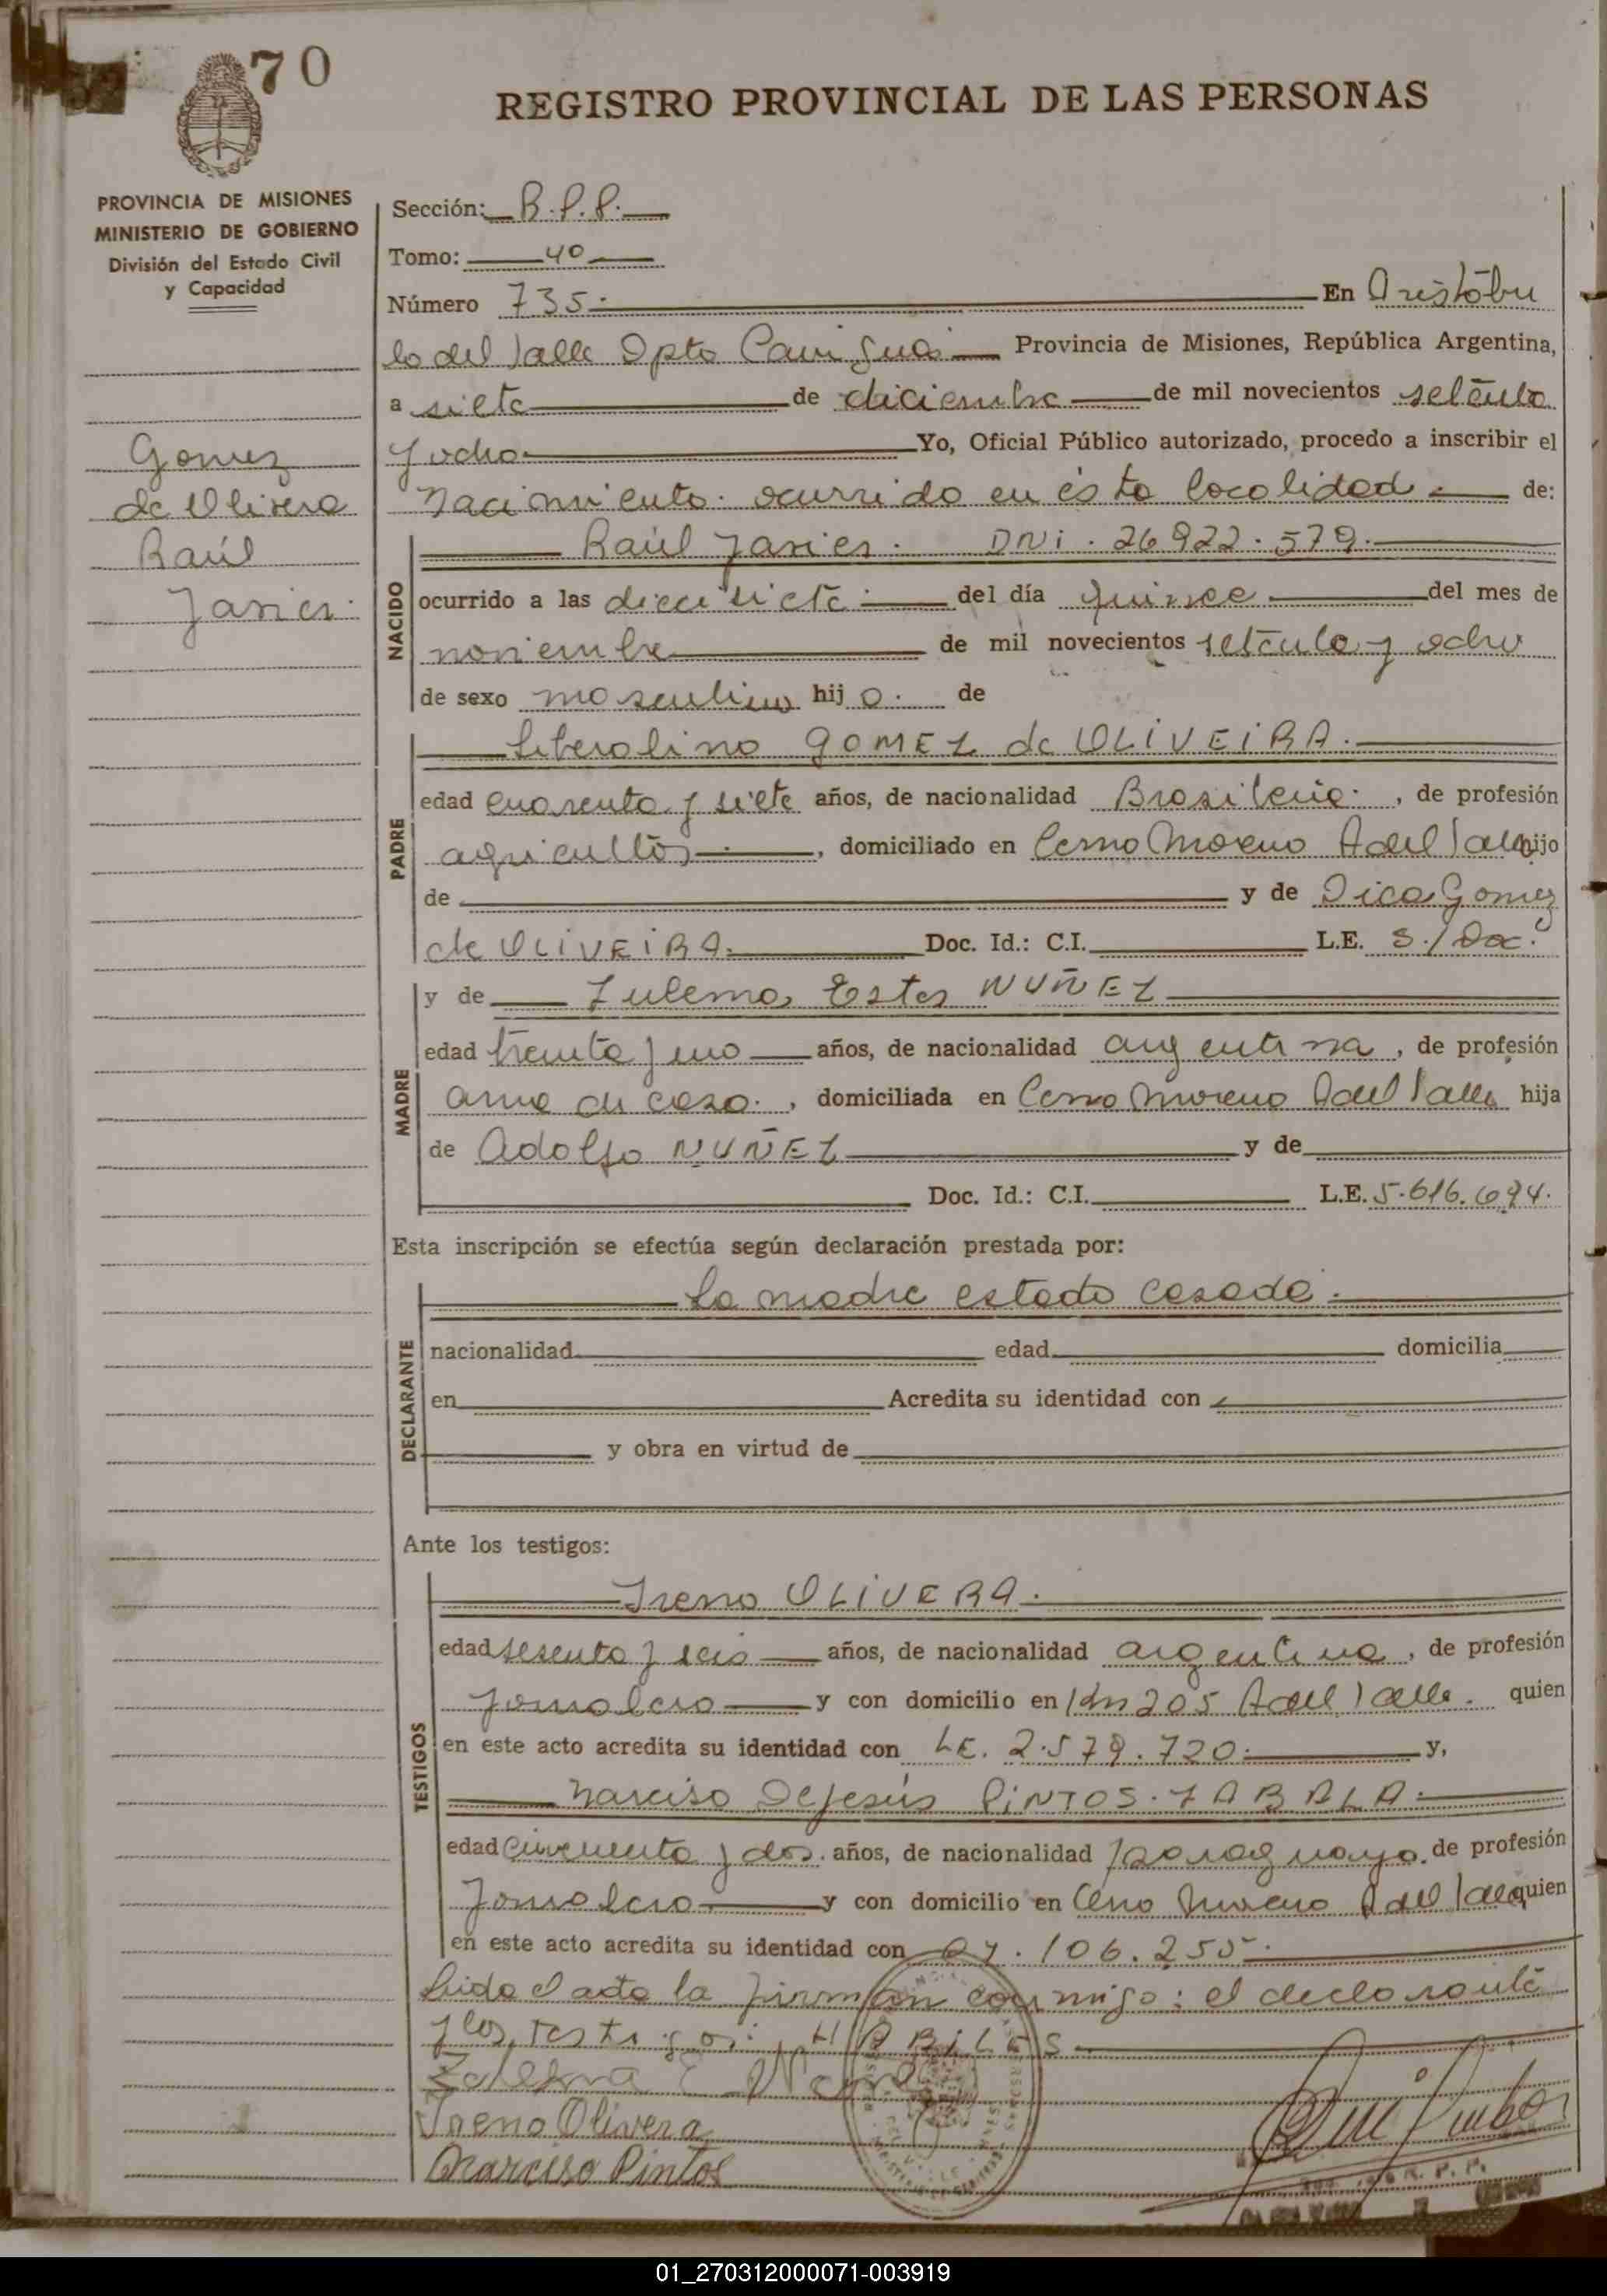 70
REGISTRO PROVINCIAL DE LAS PERSONAS
PROVINCIA DE MISIONES
MINISTERIO DE GOBIERNO
División del Estado Civil
y Capacidad
Gomez
de Olivera
Raúl
Javier.
Sección: R.P.P.
Tomo: 40
Número 735. En Aristóbu
lo del Valle Dpto Cainguas Provincia de Misiones, República Argentina,
a siete de diciembre de mil novecientos setenta
y ocho. Yo, Oficial Público autorizado, procedo a inscribir el
nacimiento. ocurrido en ésta localidad. de:
NACIDO
Raúl Javier. DNi. 26.922.579.
ocurrido a las diecisiete. del día quince. del mes de
noviembre de mil novecientos setenta y ocho
de sexo masculino hijo. de
PADRE
Liberalino GOMEZ de OLiVEiRA.
edad cuarenta y siete años, de nacionalidad Brasileña. , de profesión
agricultor. , domiciliado en Cerro Moreno A del Valle hijo
de y de Dica Gomez
de OLiVEiRA. Doc. Id.: C.I. L.E. S./Doc.
MADRE
y de Zulema Ester NUÑEZ
edad treinta y uno años, de nacionalidad argentina , de profesión
ama de casa. , domiciliada en Cerro Moreno A del Valle hija
de Adolfo NUÑEZ y de
Doc. Id.: C.I. L.E. 5.616.694.
Esta inscripción se efectúa según declaración prestada por:
DECLARANTE
La madre estado casada.
nacionalidad edad domicilia
en Acredita su identidad con
y obra en virtud de
Ante los testigos:
TESTIGOS
Ireno OLiVERA.
edad sesenta y seis años, de nacionalidad argentina , de profesión
Jornalero y con domicilio en Km 205 A del Valle. quien
en este acto acredita su identidad con LE. 2.579.720. y,
Narciso De Jesús PiNTOS. ZABALA.
edad cincuenta y dos. años, de nacionalidad paraguayo. de profesión
Jornalero y con domicilio en Cerro Moreno A del Valle quien
en este acto acredita su identidad con 07.106.255.
Leida el acta la firman conmigo: el declarante
y los testigos: HABiLES
Zulema E Nuñez
Ireno Olivera
Narciso Pintos
01_270312000071-003919